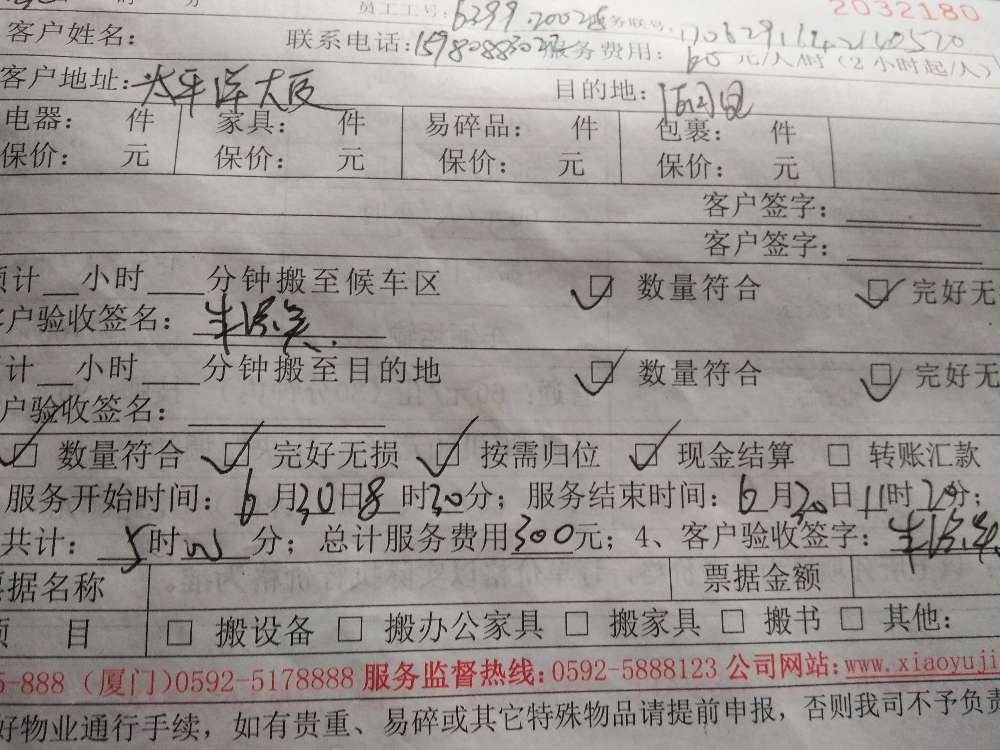 员工工号: 2032180
客户姓名: 联系电话: 服务费用: 60元/人/时(2小时起/人)
客户地址:太平洋大厦 目的地:
电器: 件 家具: 件 易碎品: 件 包裹: 件
保价: 元 保价: 元 保价: 元 保价: 元
客户签字:
客户签字:
预计 小时 分钟搬至候车区 数量符合 完好无
客户验收签名:
计 小时 分钟搬至目的地 数量符合 完好无
户验收签名:
数量符合 完好无损 按需归位 现金结算 转账汇款
服务开始时间: 6月30日8时30分; 服务结束时间: 6月30日11时20分;
共计: 5时 分; 总计服务费用300元; 4、客户验收签字:
票据名称 票据金额
项 目 搬设备 搬办公家具 搬家具 搬书 其他:
5-888 (厦门)0592-5178888 服务监督热线:0592-5888123 公司网站:www.xiaoyuji
好物业通行手续, 如有贵重、易碎或其它特殊物品请提前申报, 否则我司不予负责